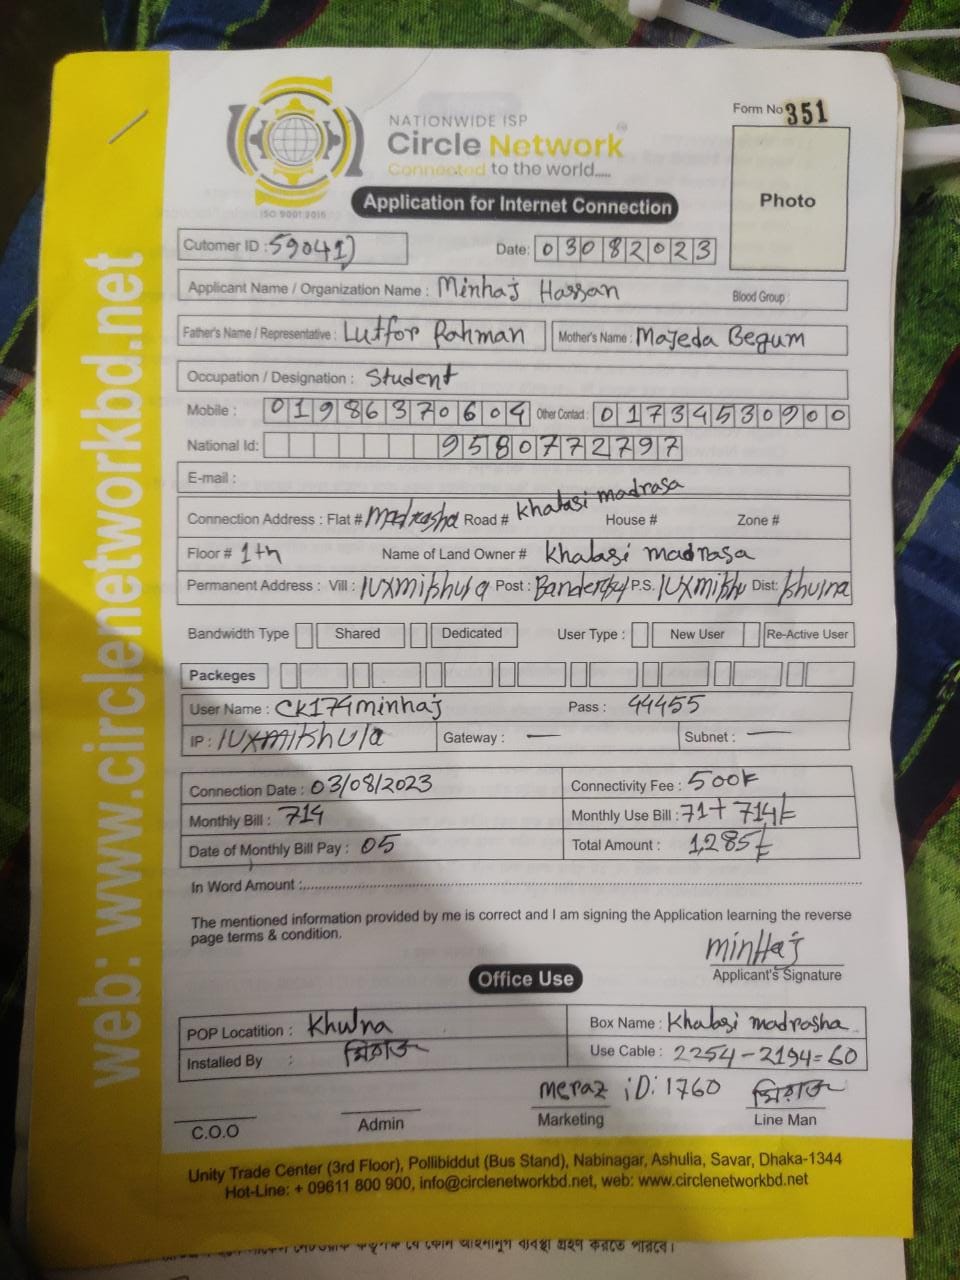 NATIONWIDE ISP
Circle Network
Connected to the world.....
ISO 9001:2015
Form No 351
Photo
Application for Internet Connection
Cutomer ID : 590417 Date: 03082023
Applicant Name / Organization Name : Minhaj Hassan Blood Group :
Father's Name / Representative : Lutfor Rahman Mother's Name : Majeda Begum
Occupation / Designation : Student
Mobile : 01986370604 Other Contact : 01734530900
National Id: 9580772797
E-mail :
Connection Address : Flat # Madrasha Road # Khalasi madrasa House # Zone #
Floor # 1th Name of Land Owner # Khalasi madrasa
Permanent Address : Vill : luxmikhula Post : P.S. Dist: Khulna
Bandwidth Type Shared Dedicated User Type : New User Re-Active User
Packeges
User Name : CK174minhaj Pass : 44455
IP : luxmikhula Gateway : — Subnet : —
Connection Date : 03/08/2023 Connectivity Fee : 500
Monthly Bill : 714 Monthly Use Bill : 71+ 714
Date of Monthly Bill Pay : 05 Total Amount : 1285
In Word Amount :
The mentioned information provided by me is correct and I am signing the Application learning the reverse
page terms & condition.
minHaj
Applicant's Signature
Office Use
POP Locatition : Khulna Box Name : Khalasi madrasha
Installed By : মিরাজ Use Cable : 2254-2194=60
Meraz iD: 1760 মিরাজ
C.O.O Admin Marketing Line Man
Unity Trade Center (3rd Floor), Pollibiddut (Bus Stand), Nabinagar, Ashulia, Savar, Dhaka-1344
Hot-Line: + 09611 800 900, info@circlenetworkbd.net, web: www.circlenetworkbd.net
web: www.circlenetworkbd.net
যে কোন আইনানুগ ব্যবস্থা গ্রহণ করতে পারবে।